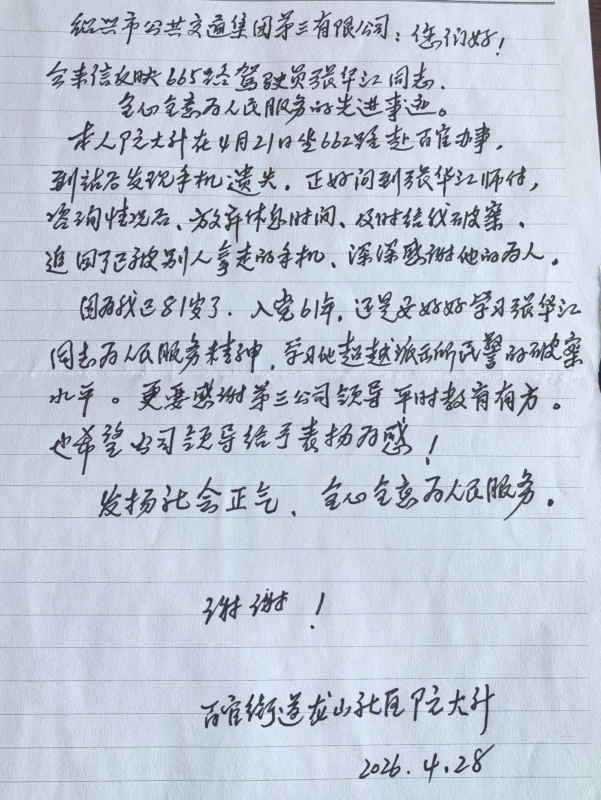 绍兴市公共交通集团第三有限公司：您们好！
今来信反映665路驾驶员张华江同志，
全心全意为人民服务的先进事迹。
本人阮大升在4月21日坐662路赴百官办事，
到站后发现手机遗失，正好问到张华江师付，
咨询情况后、放弃休息时间、及时给我破案、
追回了已被别人拿走的手机、深深感谢他的为人。
因为我已81岁了．入党61年，还是要好好学习张华江
同志为人民服务精神，学习他超越派出所民警的破案
水平。更要感谢第三公司领导平时教育有方。
也希望公司领导给予表扬为感！
发扬社会正气、全心全意为人民服务。
谢谢！
百官街道龙山社区阮大升
2026.4.28